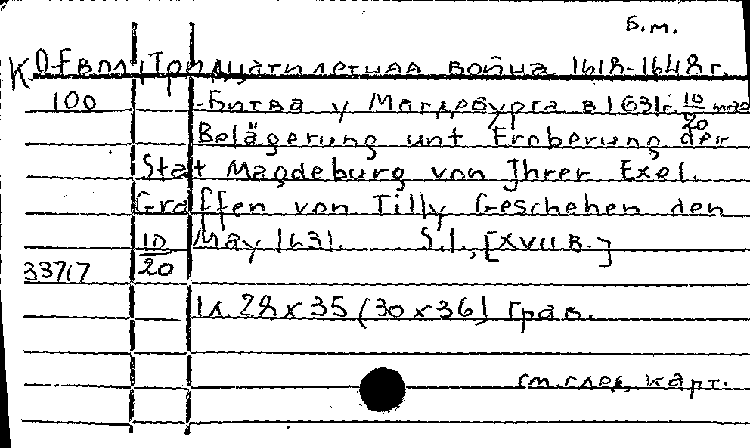 Б.м.
К О-Евпл, Тридцатилетняя война 1618-1648 г.
100 -Битва у Магдебурга в 1631 г. 10/20 мая
Belägerung unt Eroberung der
Stat Magdeburg von Ihrer Exel.
Graffen von Tilly Geschehen den
10/20 May 1631. S.l., [XVII в.]
33717
1 л. 28 x 35 (30 x 36) грав.
см. след. карт.